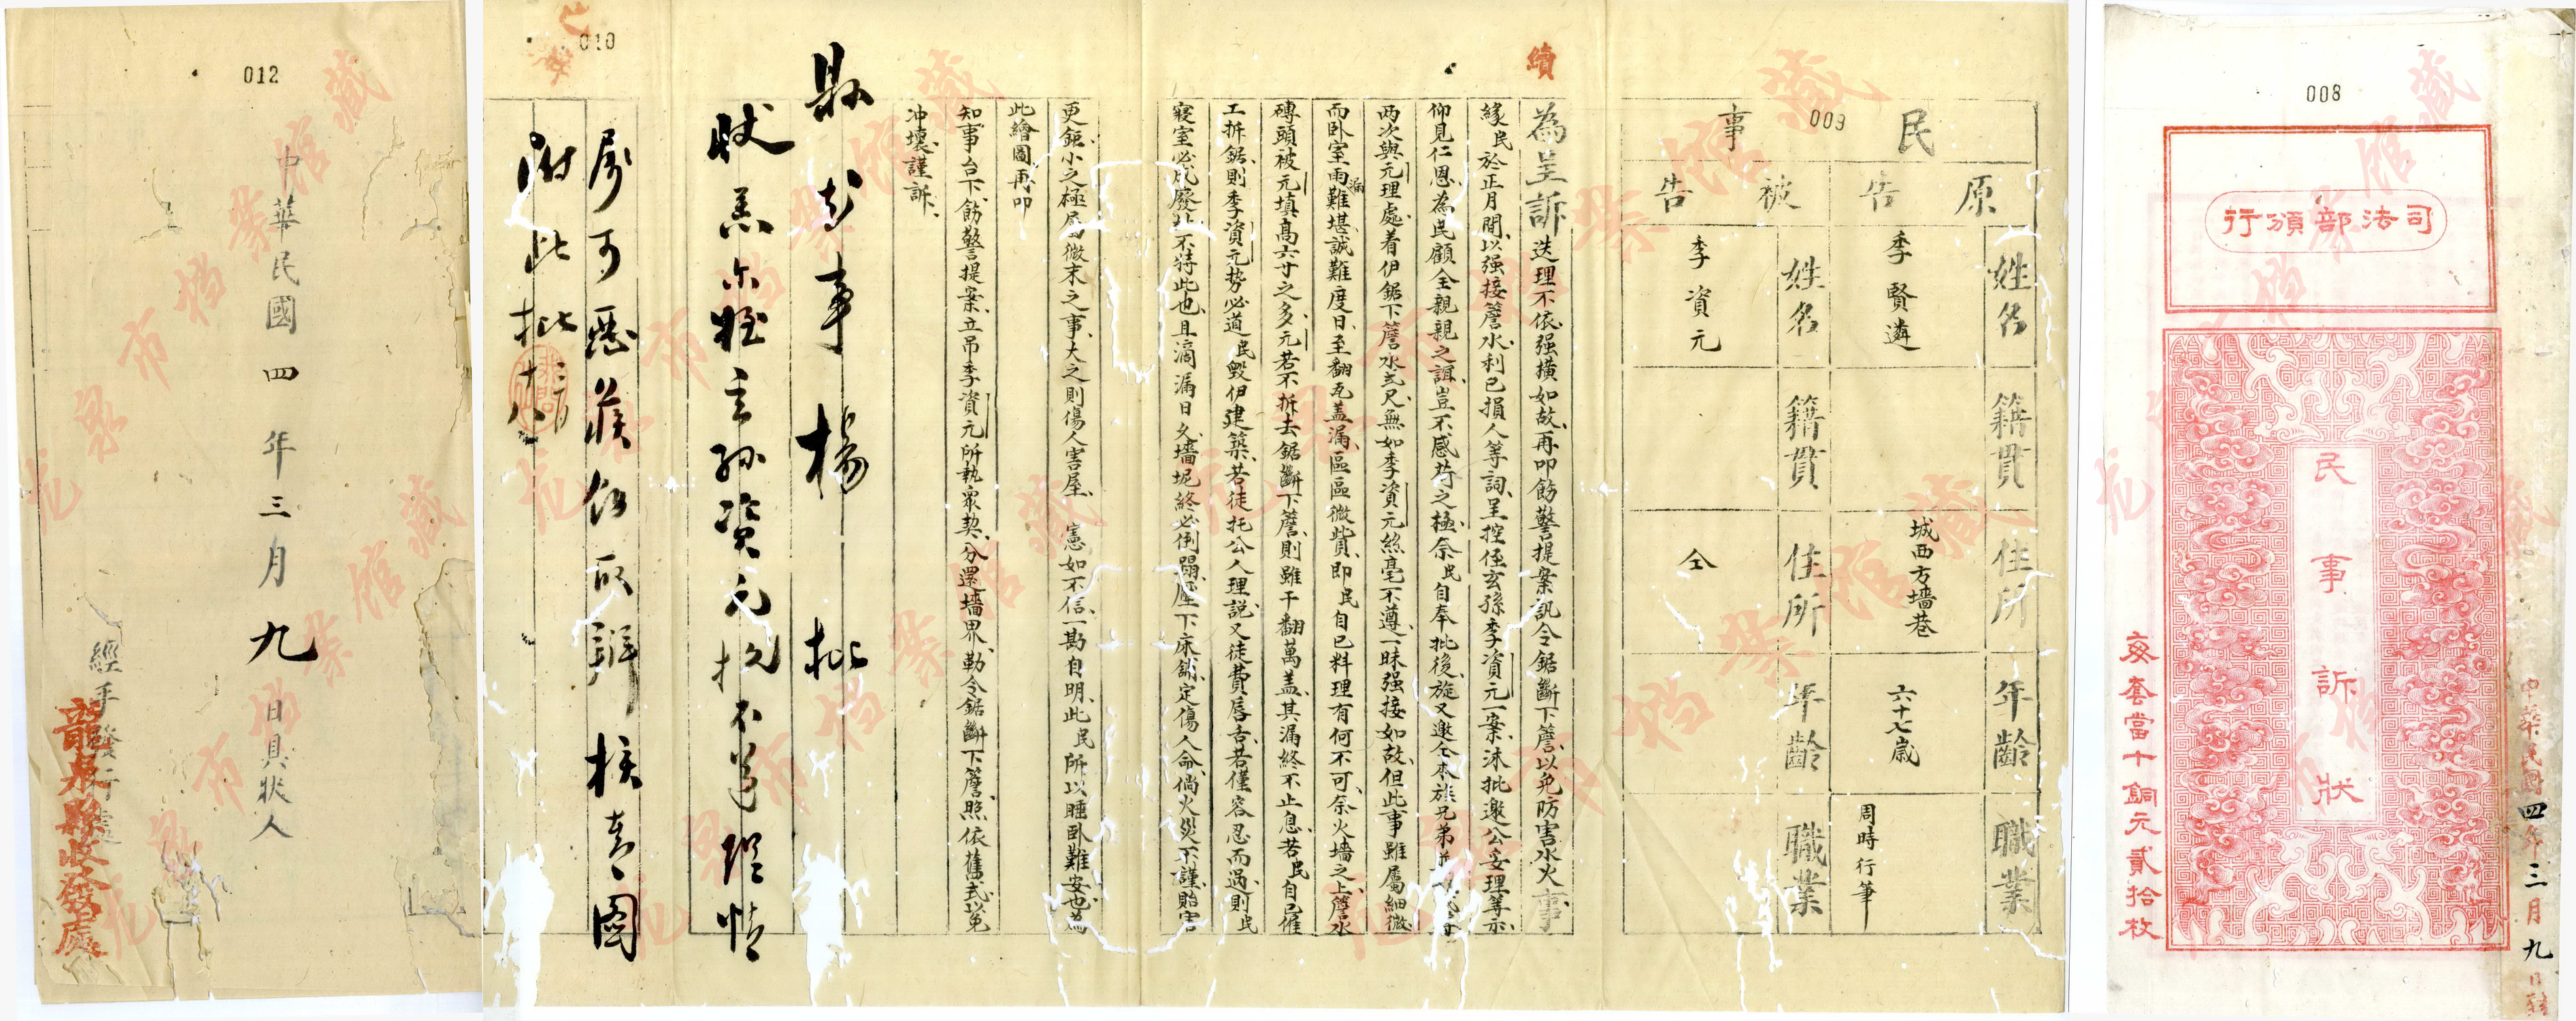 008
司法部頒行
民事訴狀
每套當十銅元貳拾枚
中華民國四年三月九日
009
民事
原告
姓名
李賢遴
籍貫
住所
城西方墻巷
年齡
六十七歲
職業
周時行筆
被告
姓名
李資元
籍貫
住所
仝
年齡
職業
續
為呈訴迭理不依强橫如故再叩飭警提案訊令鋸斷下簷以免防害水火事
緣民於正月間以强接簷水利已損人等詞呈控侄玄孫李資元一案沐批邀公妥理等示
仰見仁恩為民顧全親親之誼豈不感荷之極奈民自奉批後旋又邀仝本族兄弟
两次與元理處着伊鋸下簷水弍尺無如李資元絲毫不遵一昧强接如故但此事雖屬細微
而卧室雨漏難堪誠難度日至翻瓦盖漏區區微貲即民自已料理有何不可奈火墻之上簷水
磚頭被元填高六寸之多元若不拆去鋸斷下簷則雖千翻萬盖其漏終不止息若民自己催
工拆鋸則李資元势必道民毀伊建築若徒托公人理説又徒費唇舌若僅容忍而過則民
寢室必成廢北不特此也且滴漏日久墻坭終必倒塌壓下床鋪定傷人命倘火災不謹貽害
更鉅小之極屬微末之事大之則傷人害屋憲如不信一勘自明此民所以睡卧難安也為
此繪圖再叩
知事台下飭警提案立吊李資元所執眾契分還墻界勒令鋸斷下簷照依舊式以免
冲壞謹訴
縣知事楊 批
狀悉尔姪玄孫资元抗不遵理情
屬可惡候飭傳訊辦核查圖
附此批
三月十八
010
012
中華民國四年三月九日具狀人
經手發行處
龍泉縣收發處
龙泉市档案馆藏